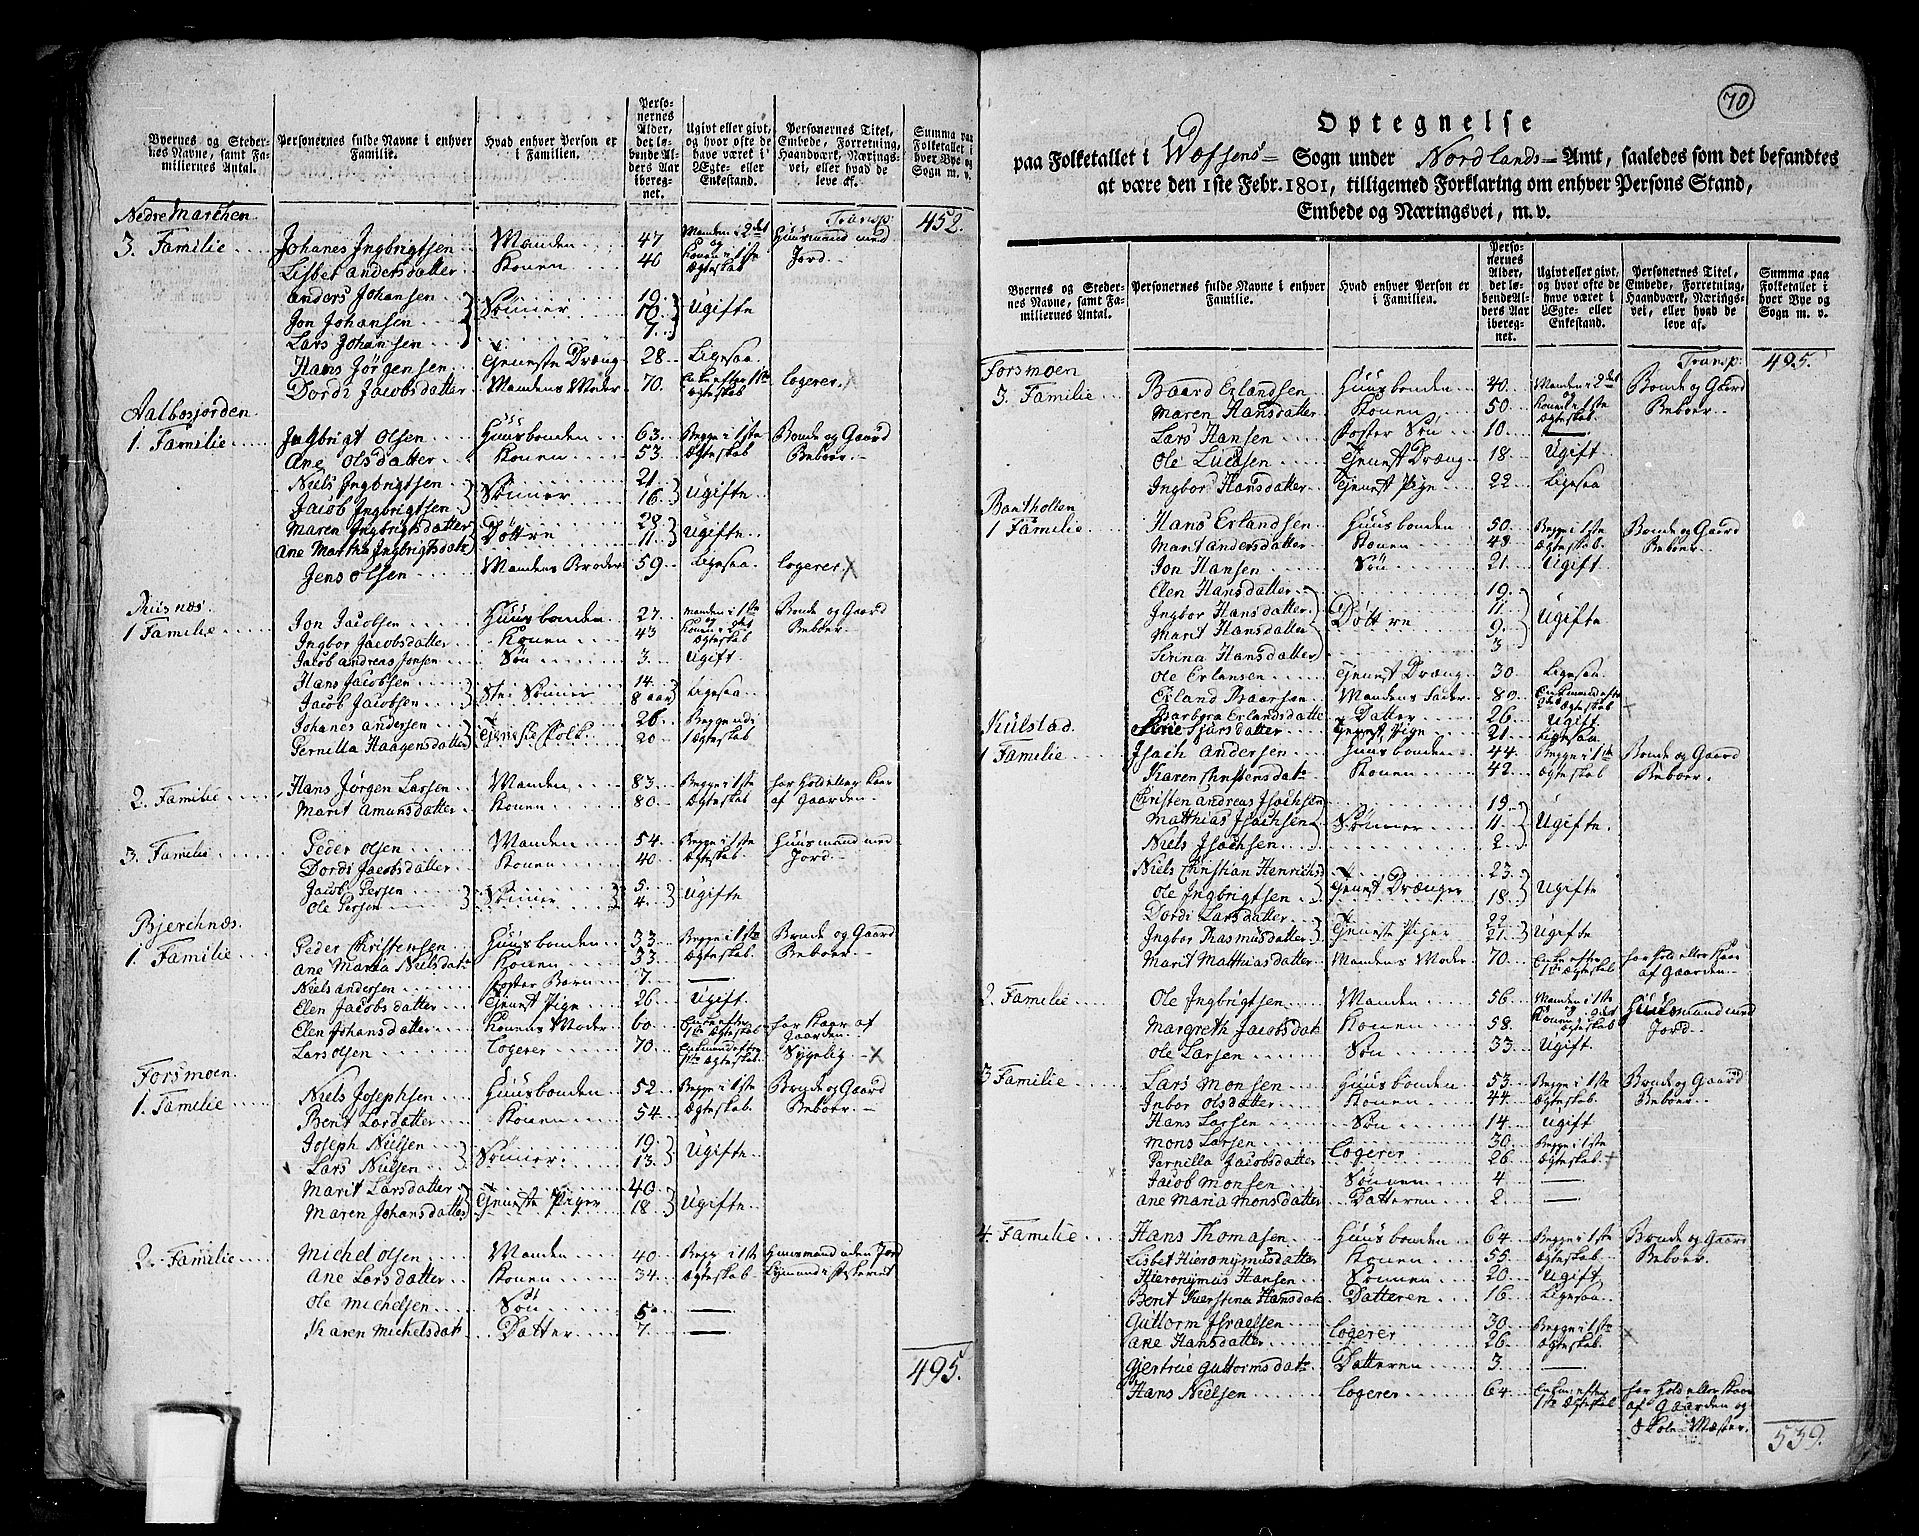 Byernes og Steder-nes Navne, samt Fa-miliernes Antal. | Personernes fulde Navne i enhver Familie. | Hvad enhver Person er i Familien. | Perso-nernes Alder, det lø-bende Al-ders Aar ibereg-net. | Ugivt eller givt, og hvor ofte de have været i Ægte- eller Enkestand. | Personernes Titel, Embede, Forretning, Haandværk, Nærings-vei, eller hvad de leve af. | Summa paa Folketallet i hver Bye og Sogn m. v.
Nedre Marchen Transp: 452.
3. Familie Johanes Ingbrigtsen Manden 47 Manden i 2det og Huusmand med
Lisbet Andersdatter Konen 46 Konen i 1ste Ægteskab Jord
Anders Johansen 19
Jon Johansen Sønner 10 Ugifte
Lars Johansen 7
Hans Jørgensen Tjeneste Dræng 28 Ligesaa
Dordi Jacobsdatter Mandens Moder 70 Enke efter 1ste Ægteskab Logerer
Aalbosjorden
1. Familie Ingbrigt Olsen Huusbonden 63 Begge i 1ste Bonde og Gaard
Ane Olsdatter Konen 53 Ægteskab Beboer
Niels Ingbrigtsen 21
Jacob Ingbrigtsen Sønner 16 Ugifte
Maren Ingbrigtsdatter 23
Ane Martha Ingbrigtsdatr Døttre 11 Ugifte
Jens Olsen Mandens Broder 59 Ligesaa Logerer
Rusnæs
1 Familie Jon Jacobsen Huusbonden 27 Manden i 1ste og Bonde og Gaard
Ingbor Jacobsdatter Konen 43 Konen i 2det Ægteskab Beboer
Jacob Andreas Jonsen Søn 3 Ugift
Hans Jacobsen 14
Jacob Jacobsen Stei Sønner 8 aar Ligesaa
Johanes Andersen 26 Begge udi
Pernilla Haagensdatter Tjeneste Folk 20 1 Ægteskab
2. Familie Hans Jørgen Larsen Manden 83 Begge i 1ste har hold eller kaar
Marit Amunsdatter Konen 80 Ægteskab af Gaarden
3. Familie Peder Olsen Manden 54 Begge i 1ste Huusmand med
Dordi Jacobsdatter Konen 40 Ægteskab Jord
Jacob Persen 5
Ole Persen Sønner 4 Ugifte
Bjerchnæs
1. Familie Peder Christensen Huusbonden 33 Begge i 1ste Bonde og Gaard
Ane Maria Nielsdatr Konen 33 Ægteskab Beboer
Niels Andersen Foster Barn 7 —
Elen Jacobsdatter Tjenest Pige 26 Ugift
Elen Johansdatter Konens Moder 60 Enke efter 1ste Ægteskab har Kaar af Gaarden
Lars Olsen Logerer 70 Enkmand efter 1ste Ægteskab Sygelig
Forsmoen
1. Familie Niels Josephsen Huusbonden 52 Begge i 1ste Bonde og Gaard
Berit Larsdatter Konen 54 Ægteskab Beboer
Joseph Nielsen 19
Lars Nielsen Sønner 13 Ugifte
Marit Larsdatter 40
Maren Johansdatter Tjeneste Piger 18 Ugifte
2. Familie Michel Olsen Manden 40 Begge i 1ste Huusmand uden Jord
Ane Larsdatter Konen 34 Ægteskab
Ole Michelsen Søn 5 —
Karen Michelsdatr Datter 7 —
495.
70
Optegnelse
paa Folketallet i Wefsens Sogn under Nordlands Amt, saaledes som det befandtes
at være den 1ste Febr. 1801, tilligemed Forklaring om enhver Persons Stand,
Embede og Næringsvei, m. v.
Byernes og Steder-nes Navne, samt Fa-miliernes Antal. | Personernes fulde Navne i enhver Familie. | Hvad enhver Person er i Familien. | Perso-nernes Alder, det lø-bende Al-ders Aar ibereg-net. | Ugivt eller givt, og hvor ofte de have været i Ægte- eller Enkestand. | Personernes Titel, Embede, Forretning, Haandværk, Nærings-vei, eller hvad de leve af. | Summa paa Folketallet i hver Bye og Sogn m. v.
Forsmoen Transp: 495.
3. Familie Baard Erlandsen Huusbonden 40 Manden i 2det og Bonde og Gaard
Maren Hansdatter Konen 50 Konen i 1ste Ægteskab Beboer
Lars Hansen Foster Søn 10 —
Ole Luedsen Tjenest Dræng 18 Ugift
Ingbor Hansdatter Tjenest Pige 22 Ligesaa
Bontholten
1 Familie Hans Erlandsen Huusbonden 50 Begge i 1ste Bonde og Gaard
Marit Andersdatter Konen 48 Ægteskab Beboer
Jon Hansen Søn 21 Ugift
Elen Hansdatter 19
Ingbor Hansdatter Døttre 11 Ugifte
Marit Hansdatter 9
Serina Hansdatter 3
Ole Erlensen Tjenest Dræng 30 Ligesaa
Erland Baarsen Mandens Fader 80 Enkemand efter Ægteskab
Barbara Erlandsdatte Datter 26 Ugift
Kulstad Sjursdatter Tjenest Pige 21 Ligesaa
1 Familie Isach Andersen Huusbonden 44 Begge i 1ste Bonde og Gaard
Karen Christensdatr Konen 42 Ægteskab Beboer
Christen Andreas Isachsen 19
Matthias Isachsen Sønner 11 Ugifte
Niels Isachsen 2
Niels Christian Henrichs 23
Ole Ingbrigtsen Tjenest Drænger 18 Ugifte
Dordi Larsdatter 22
Ingbor Rasmusdatter Tjeneste Piger 21 Ugifte
Marit Matthiasdatter Mandens Moder 70 Enke efter 1ste Ægteskab har hold eller Kaar af Gaarden
2. Familie Ole Ingbrigtsen Manden 56 Manden i 1ste og Huusmand med
Margreth Jacobsdatr Konen 58 Konen i 2det Ægteskab Jord
Ole Larsen Søn 33 Ugift
3 Familie Lars Monsen Huusbonden 53 Begge i 1ste Bonde og Gaard
Inbor Olsdatter Konen 44 Ægteskab Beboer
Hans Larsen Søn 14 Ugift
Mons Larsen 30 Begge i 1ste
Pernilla Jacobsdatter Logerer 26 Ægteskab
Jacob Monsen Sønnen 4 —
Ane Maria Monsdatter Datteren 2 —
4. Familie Hans Thomasen Huusbonden 64 Begge i 1ste Bonde og Gaard
Lisbet Hieronymusdatter Konen 55 Ægteskab Beboer
Hieronymus Hansen Sønnen 20 Ugift
Berit Kierstina Hansdatr Datteren 16 Ligesaa
Guttorm Israelsen 30 Begge i 1ste
Ane Hansdatter Logerer 26 Ægteskab
Gjertrue Guttormsdatr Datteren 3 —
Hans Nielsen Logerer 64 Enkm. efter 1ste Ægteskab har hold eller Kaar af Gaarden og Skole Mæster
539.